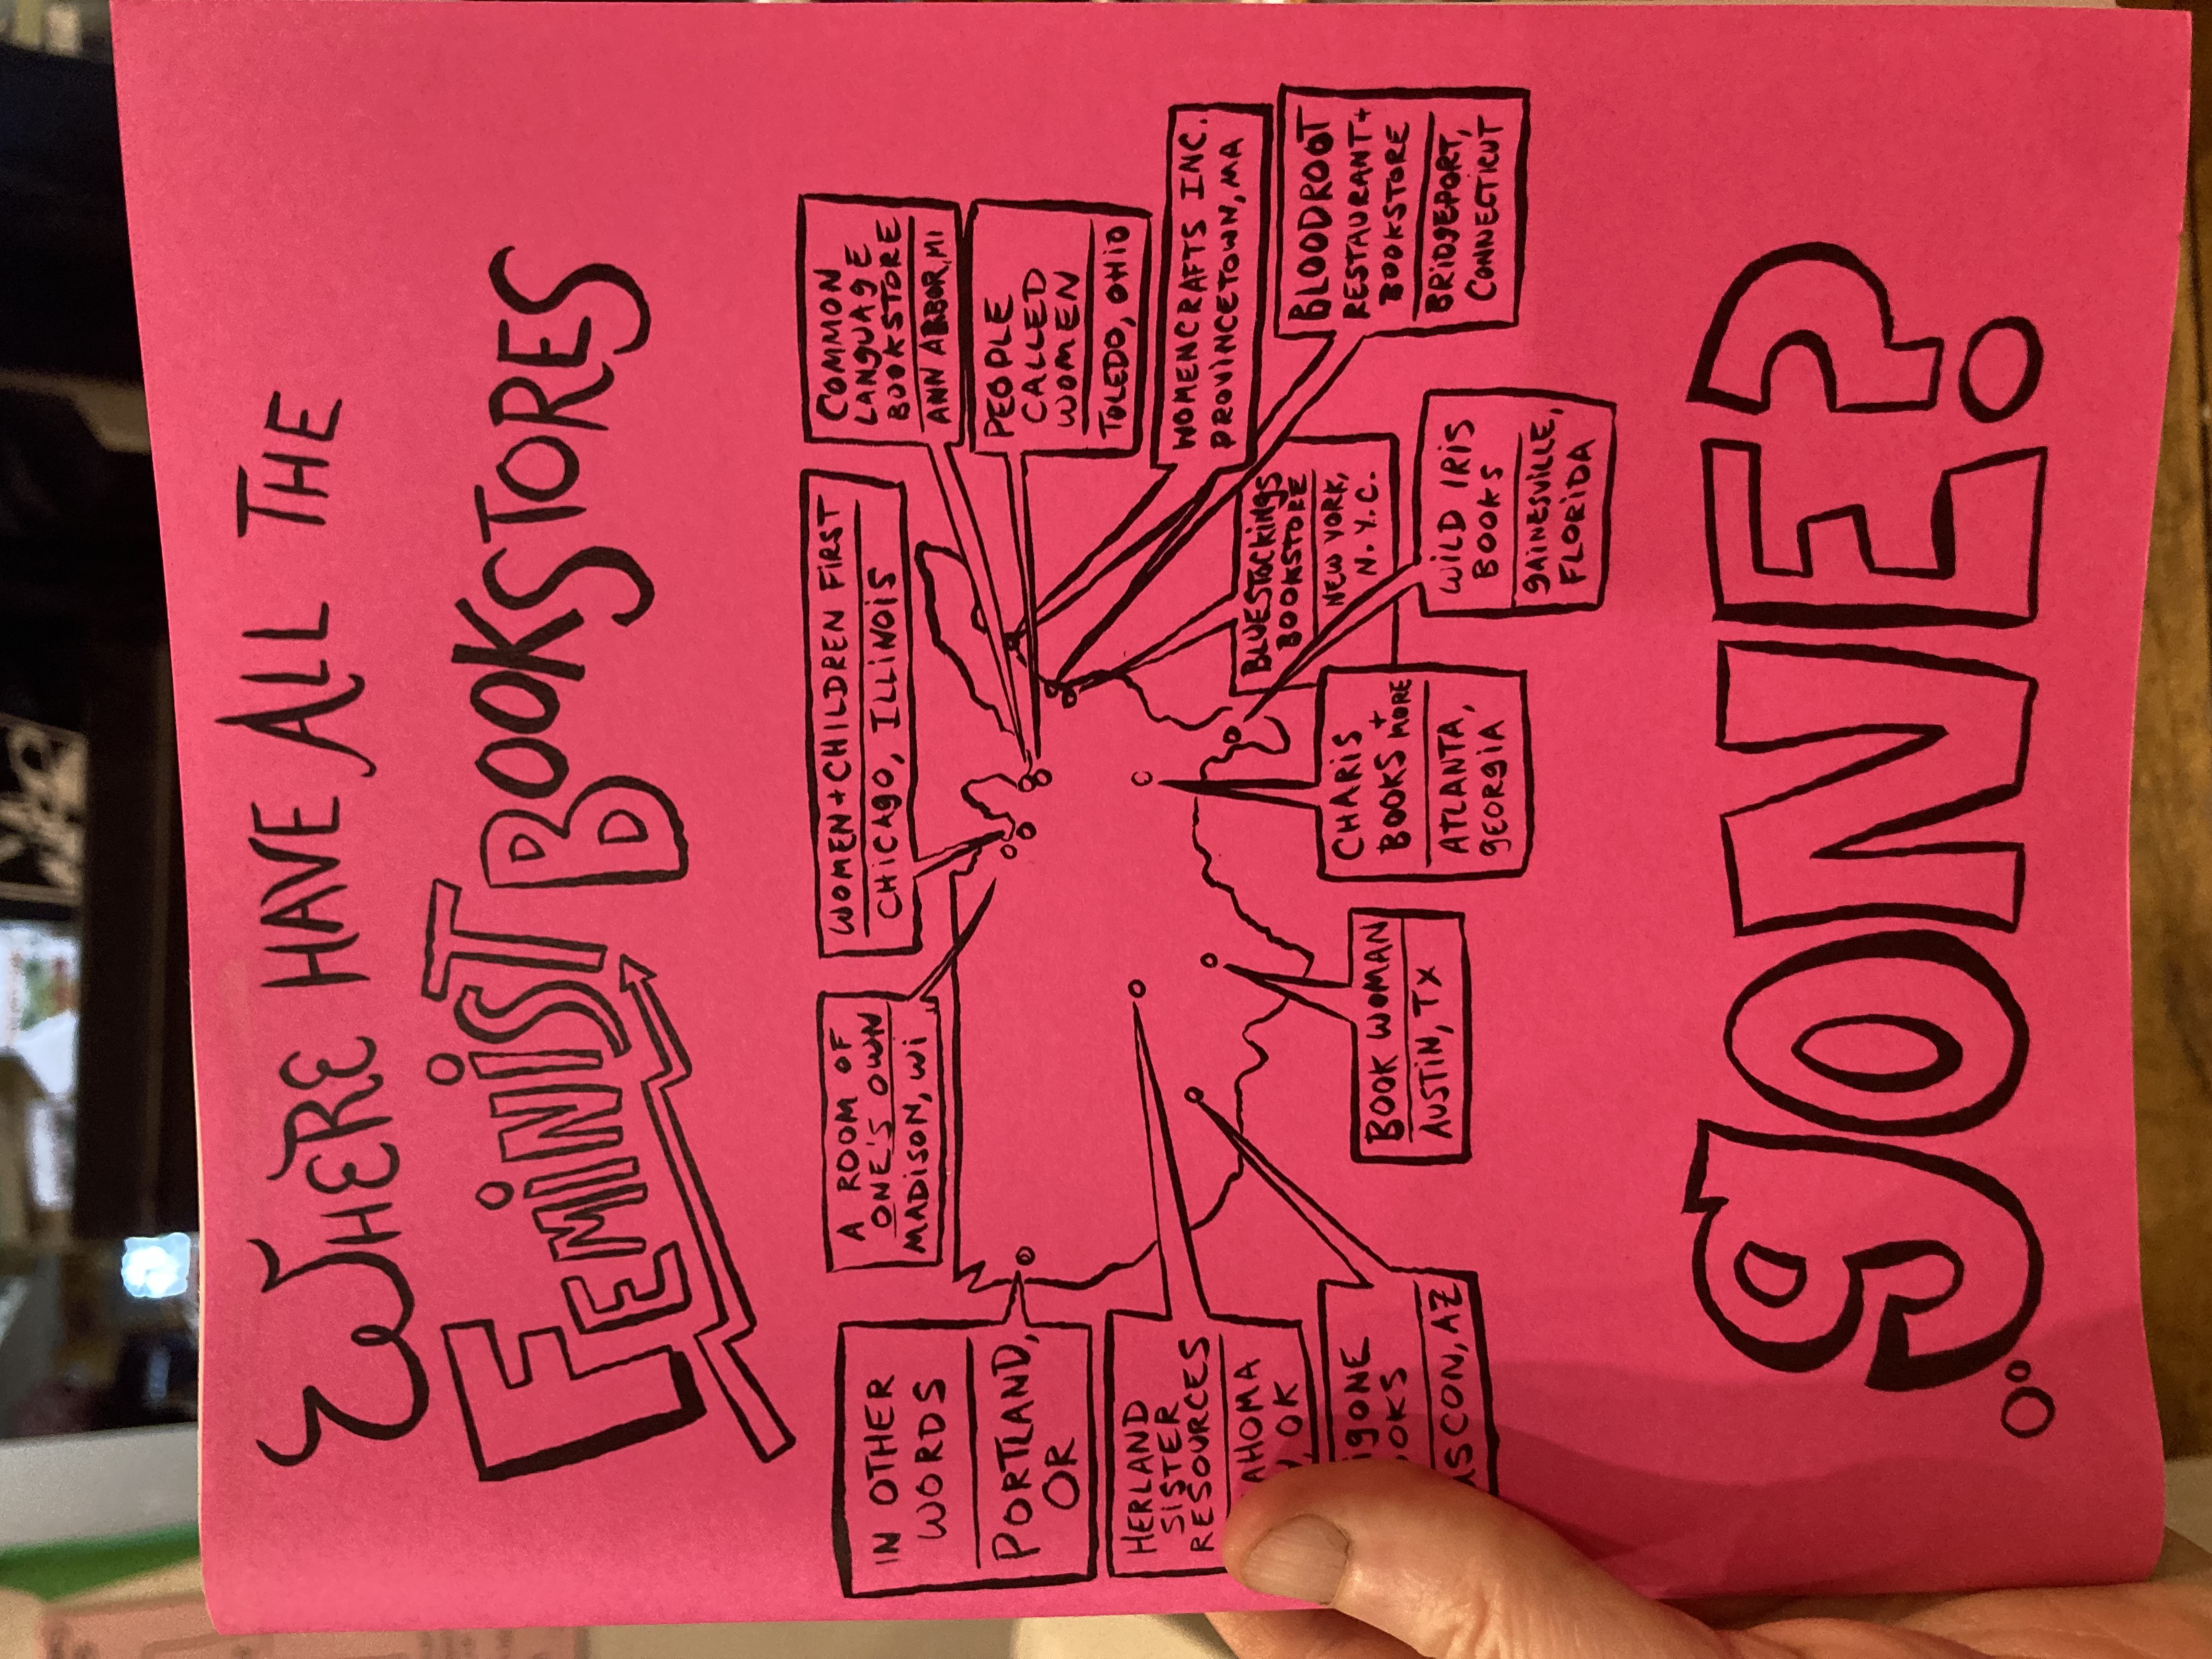 WHERE HAVE ALL THE
FEMINIST BOOKSTORES
WOMEN + CHILDREN FIRST
CHICAGO, ILLINOIS
COMMON
LANGUAGE
BOOKSTORE
ANN ARBOR, MI
A ROOM OF
ONE'S OWN
MADISON, WI
PEOPLE
CALLED
WOMEN
TOLEDO, OHIO
IN OTHER
WORDS
PORTLAND,
OR
WOMENCRAFTS INC.
PROVINCETOWN, MA
BLOODROOT
RESTAURANT +
BOOKSTORE
BRIDGEPORT,
CONNECTICUT
HERLAND
SISTER
RESOURCES
AHOMA
OK
BLUESTOCKINGS
BOOKSTORE
NEW YORK,
N.Y.C.
IGONE
OKS
SCON, AZ
BOOK WOMAN
AUSTIN, TX
CHARIS
BOOKS + MORE
ATLANTA,
GEORGIA
WILD IRIS
BOOKS
GAINESVILLE,
FLORIDA
GONE?